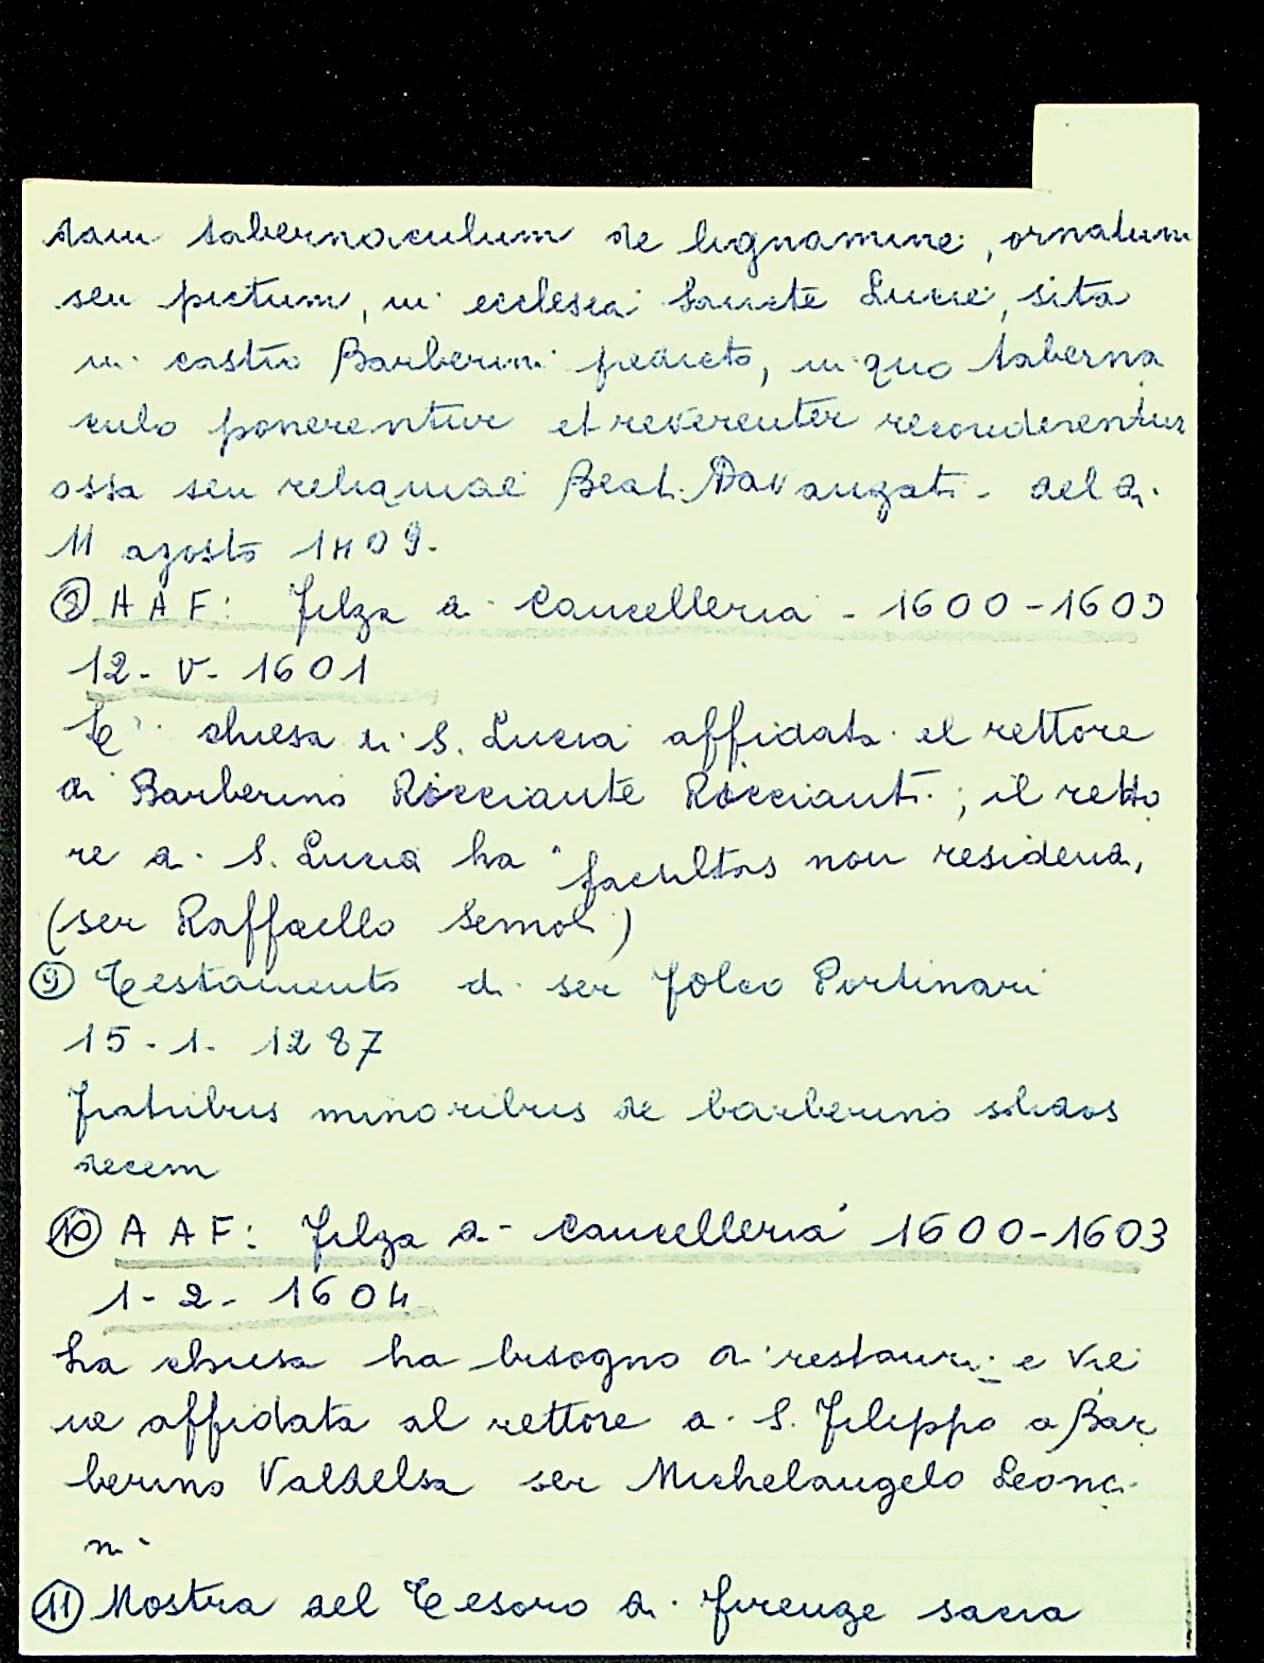 dam tabernaculum de lignamine, ornatum
seu pictum, in ecclesia Sancte Lucie, sita
in castro Barberini predicto, in quo taberna
culo ponerentur et reverenter reconderentur
ossa seu reliquiae Beati Davanzati - del di
11 agosto 1409.
⑧ A A F: Filza di Cancelleria - 1600-1603
12- V- 1601
E' chiesa di S. Lucia affidata al rettore
di Barberino Ricciante Riccianti; il retto
re di S. Lucia ha "facultas non residendi,
(ser Raffaello Semoli)
⑨ Testamento di ser Folco Portinari
15-1-1287
Fratribus minoribus de barberino solidos
decem
⑩ A A F: Filza di Cancelleria 1600-1603
1-2-1604
La chiesa ha bisogno di restauri e vie
ne affidata al rettore di S. Filippo a Bar
berino Valdelsa ser Michelangelo Leonci
ni
⑪ Mostra del Tesoro di Firenze sacra